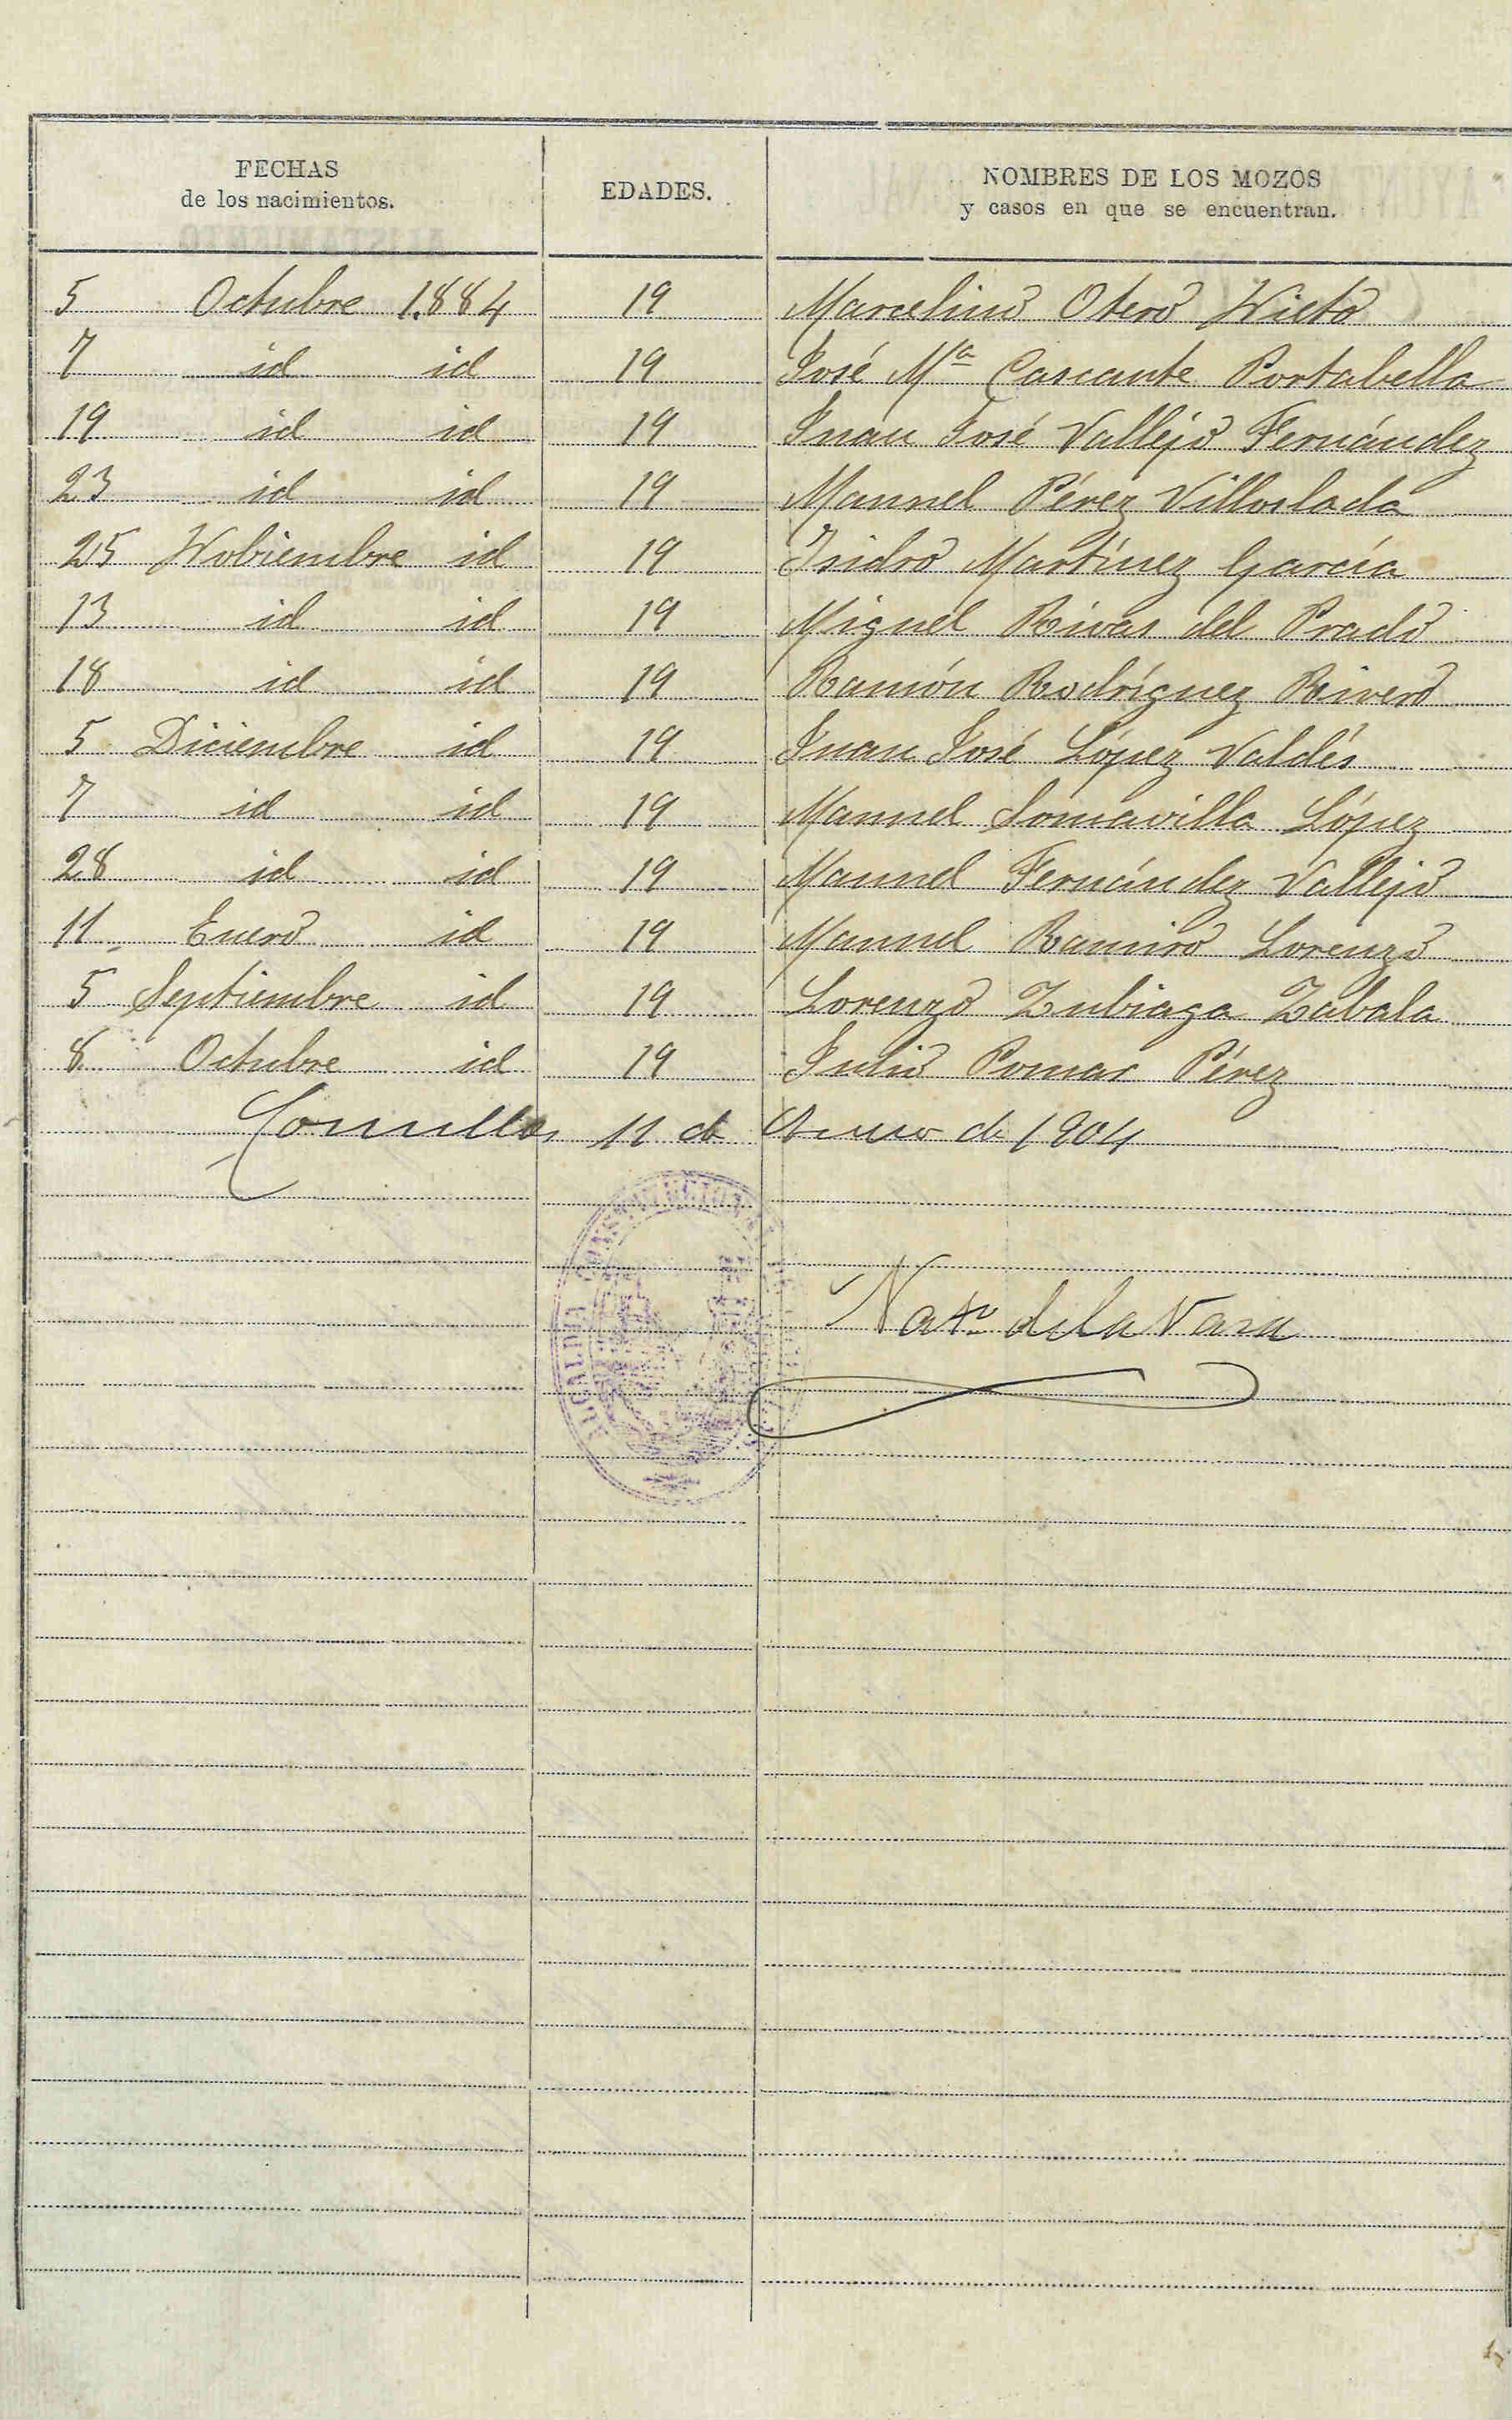 FECHAS
de los nacimientos.
EDADES.
NOMBRES DE LOS MOZOS
y casos en que se encuentran.
5 Octubre 1.884 19 Marcelino Otero Nieto
7 id id 19 José Mª Cascante Portabella
19 id id 19 Juan José Vallejo Fernández
23 id id 19 Manuel Pérez Villoslada
25 Nobiembre id 19 Isidro Martínez García
13 id id 19 Miguel Rivas del Prado
18 id id 19 Ramón Rodríguez Rivero
5 Diciembre id 19 Juan José López Valdés
7 id id 19 Manuel Somavilla López
28 id id 19 Manuel Fernández Vallejo
11 Enero id 19 Manuel Ramiro Lorenzo
5 Septiembre id 19 Lorenzo Zubiaga Zabala
8 Octubre id 19 Julio Pomar Pérez
Comillas 11 de Enero de 1904
de la Vara